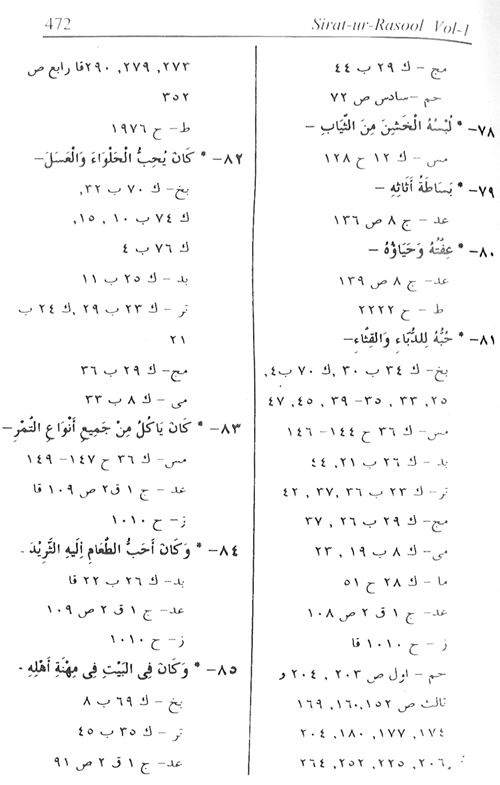 472
Sirat-ur-Rasool Vol-1
مج – ك ٢٩ ب ٤٤
حم – سادس ص ٧٢
٧٨– * لُبْسُهُ الْخَشِنَ مِنَ الثِّيَابِ –
مس – ك ١٢ ح ١٢٨
٧٩– * بَسَاطَةُ أَثَاثِهِ –
عد – ج ٨ ص ١٣٦
٨٠– * عِفَّتُهُ وَحَيَاؤُهُ –
عد – ج ٨ ص ١٣٩
ط – ح ٢٢٢٢
٨١– * حُبُّهُ لِلدُّبَّاءِ وَالْقِثَّاءِ–
بخ – ك ٣٤ ب ٣٠ ,ك ٧٠ ب٤,
٢٥, ٣٣ , ٣٥– ٣٩ , ٤٥, ٤٧
مس– ك ٣٦ ح ١٤٤– ١٤٦
بد – ك ٢٦ ب ٢١, ٤٤
تر – ك ٢٣ ب ٣٦, ٣٧, ٤٢
مج – ك ٢٩ ب ٢٦, ٣٧
مى – ك ٨ ب ١٩, ٢٣
ما – ك ٢٨ ح ٥١
عد – ج ١ ق ٢ ص ١٠٨
ز – ح ١٠١٠ قا
حم – اول ص ٢٠٣ , ٢٠٤ و
ثالث ص ١٥٢, ١٦٠, ١٦٩
١٧٤, ١٧٧, ١٨٠, ٢٠٤
٢٠٦, ٢٢٥, ٢٥٢, ٢٦٤
٢٧٣, ٢٧٩, ٢٩٠قا رابع ص
٣٥٢
ط – ح ١٩٧٦
٨٢– * كَانَ يُحِبُّ الْحَلْوَاءَ وَالْعَسَلَ–
بخ – ك ٧٠ ب ٣٢,
ك ٧٤ ب ١٠ , ١٥,
ك ٧٦ ب ٤
بد – ك ٢٥ ب ١١
تر – ك ٢٣ ب ٢٩ ,ك ٢٤ ب
٢١
مج – ك ٢٩ ب ٣٦
مى – ك ٨ ب ٣٣
٨٣– * كَانَ يَاكُلُ مِنْ جَمِيعِ أَنْوَاعِ التَّمْرِ–
مس– ك ٣٦ ح ١٤٧– ١٤٩
عد – ج ١ ق٢ ص ١٠٩ قا
ز– ح ١٠١٠
٨٤– * وَكَانَ أَحَبُّ الطَّعَامِ اِلَيهِ الثَّرِيْدَ .
بد – ك ٢٦ ب ٢٢ قا
عد – ج ١ ق ٢ ص ١٠٩
ز– ح ١٠١٠
٨٥– * وَكَانَ فِى الْبَيْتِ فِى مِهْنَةِ أَهْلِهِ .
بخ – ك ٦٩ ب ٨
تر – ك ٣٥ ب ٤٥
عد– ج ١ ق ٢ ص ٩١